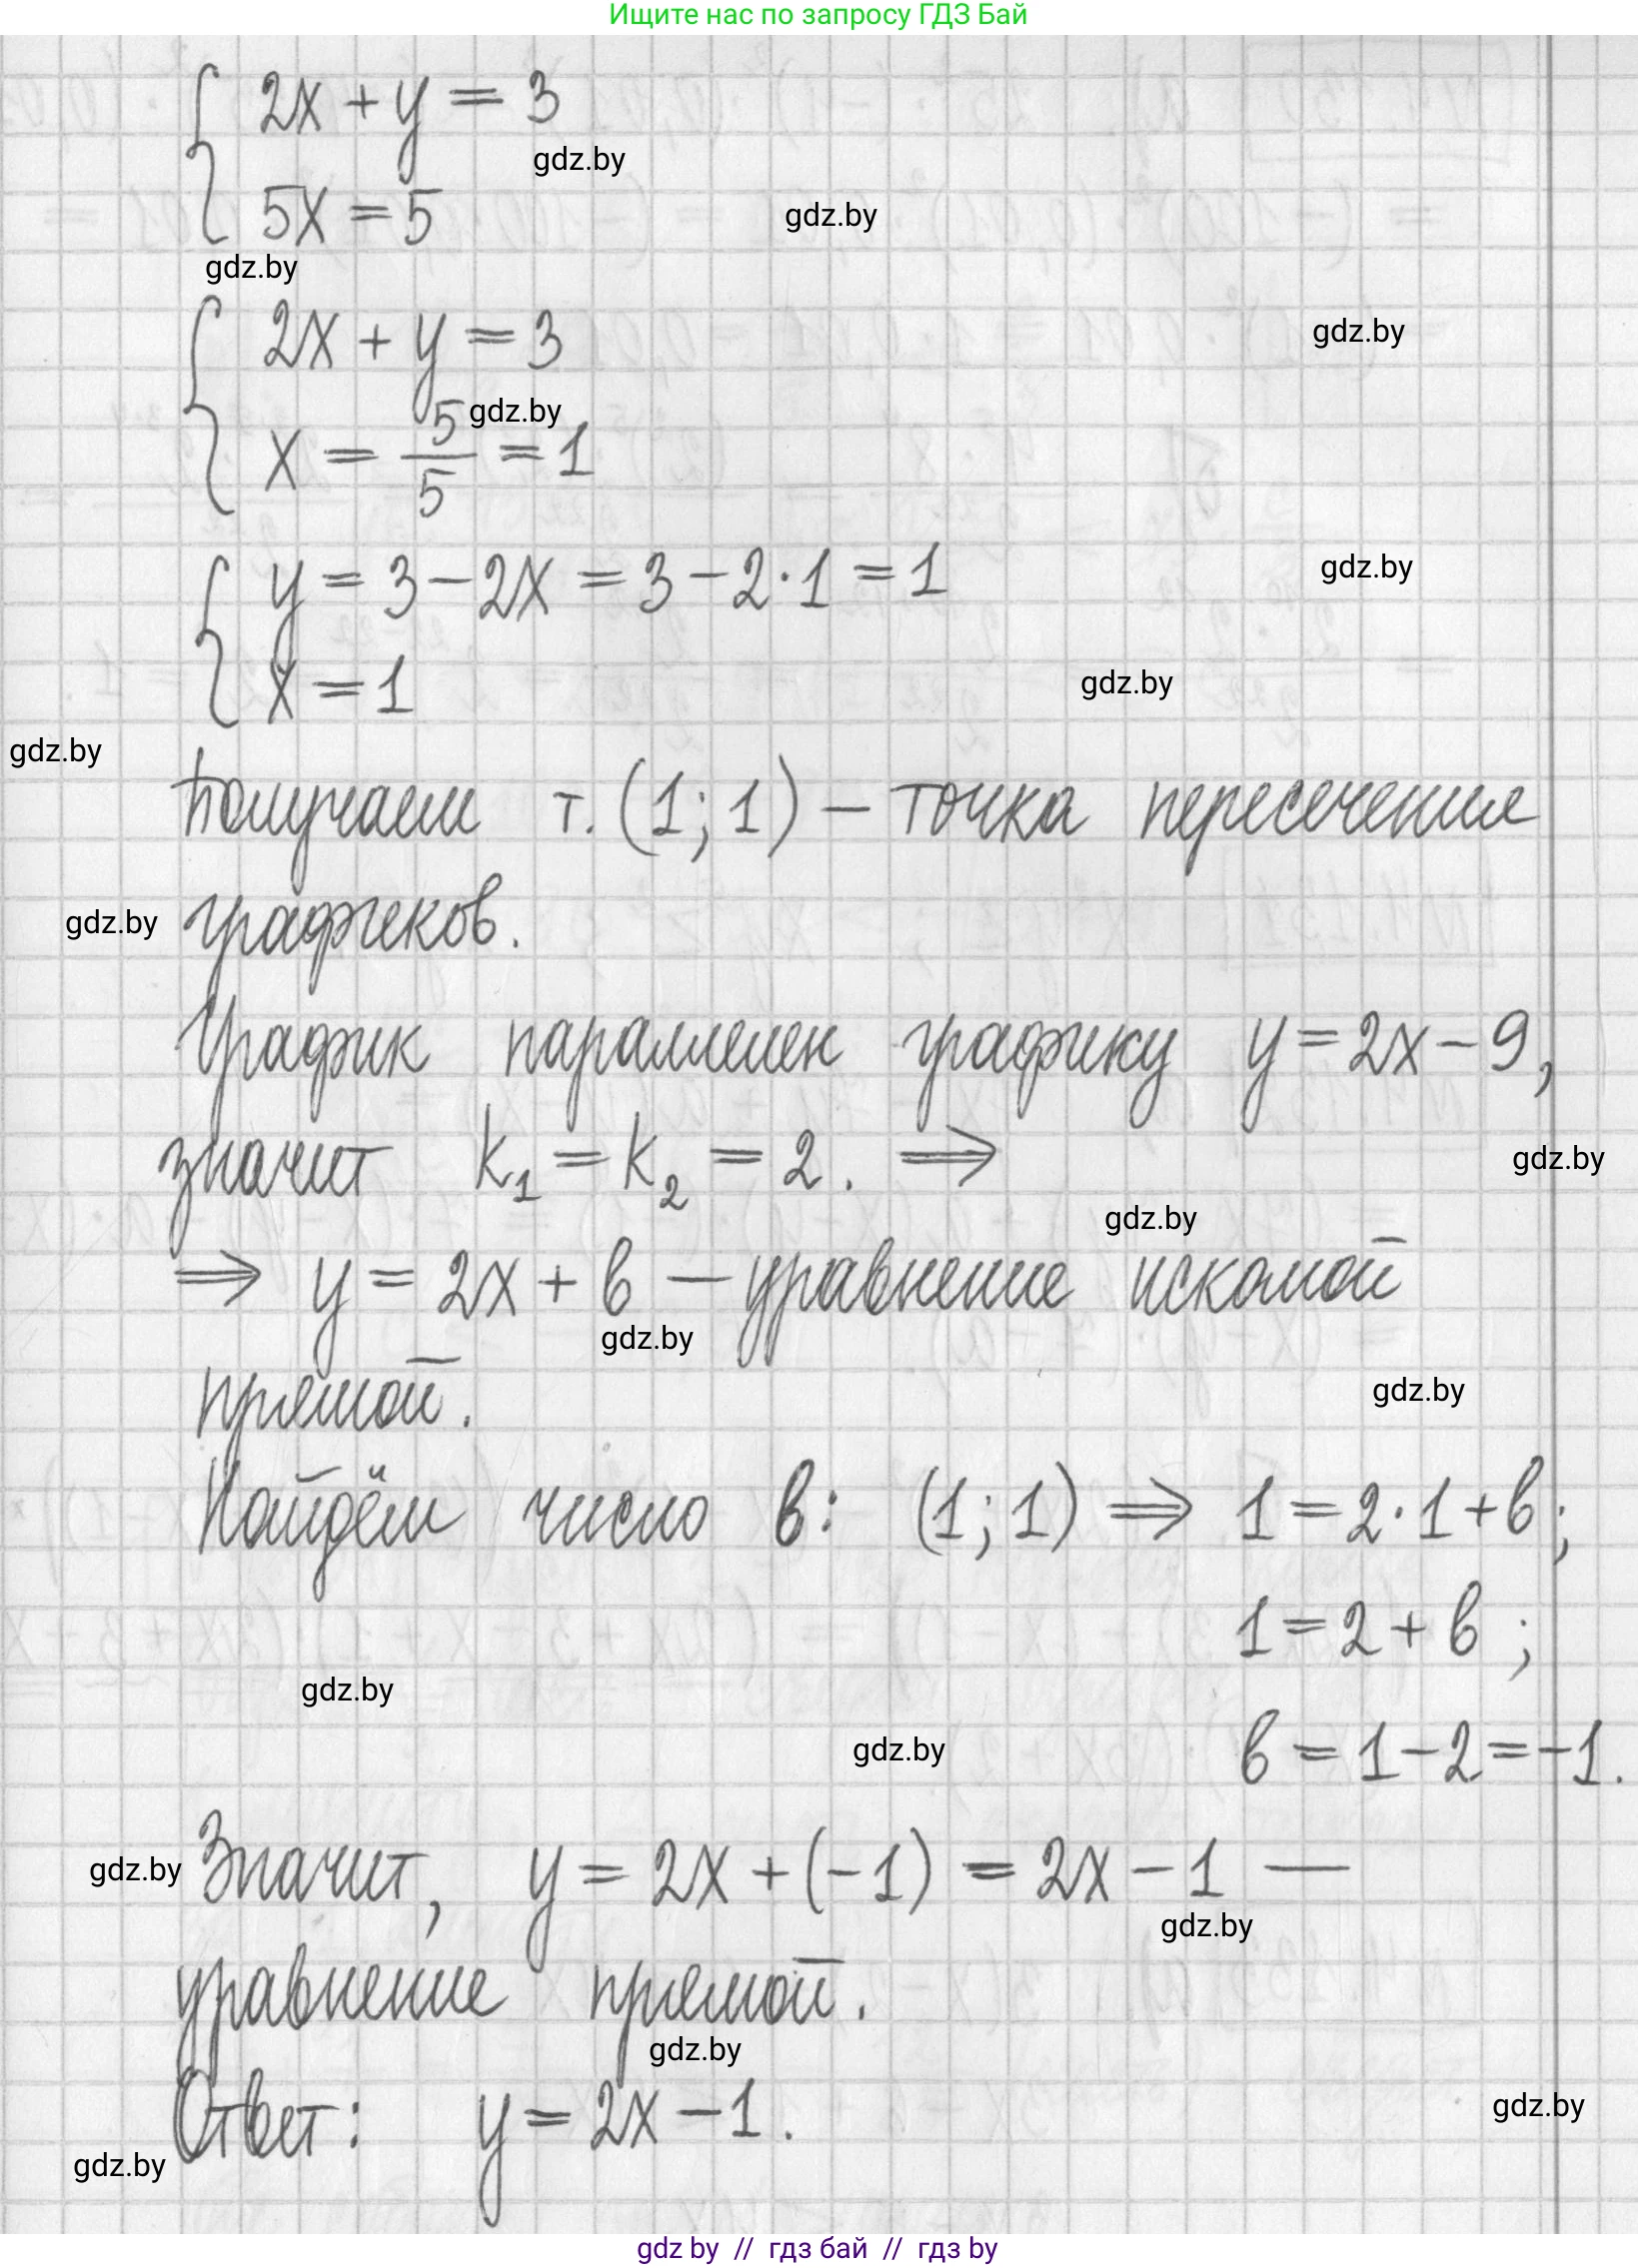 Ищите нас по запросу ГДЗ Бай
2x + y = 3
gdz.by
5x = 5
gdz.by
gdz.by
2x + y = 3
gdz.by
x = 5/5 = 1
gdz.by
y = 3 - 2x = 3 - 2·1 = 1
gdz.by
x = 1
gdz.by
gdz.by
Получаем т. (1; 1) – точка пересечения
gdz.by
графиков.
График параллелен графику y = 2x - 9,
значит k₁ = k₂ = 2. ⇒
gdz.by
gdz.by
⇒ y = 2x + b — уравнение искомой
gdz.by
прямой.
gdz.by
Найдём число b: (1; 1) ⇒ 1 = 2·1 + b;
1 = 2 + b ;
gdz.by
gdz.by
b = 1 - 2 = -1.
gdz.by
Значит, y = 2x + (-1) = 2x - 1 —
gdz.by
уравнение прямой.
gdz.by
Ответ: y = 2x - 1.
gdz.by
gdz.by
gdz by // гдз бай // гдз by